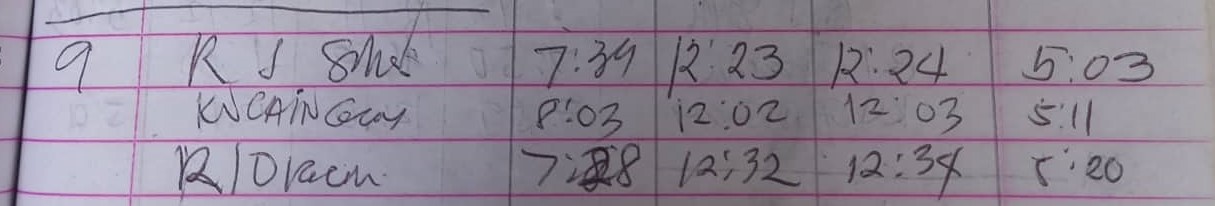 9 R J 7:39 12:23 12:24 5:03
8:03 12:02 12:03 5:11
7:28 12:32 12:34 5:20